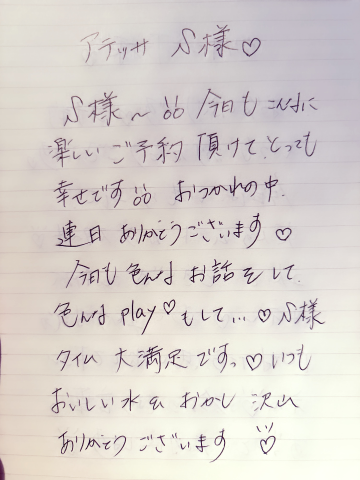 アテッサ S様♡
S様〜 今日も こんなに
楽しい ご予約 頂けて、とっても
幸せです おつかれの中、
連日 ありがとうございます♡
今日も 色んな お話をして、
色んな play♡もして…♡S様
タイム 大満足ですっ♡いつも
おいしい水& おかし 沢山
ありがとう ございます♡